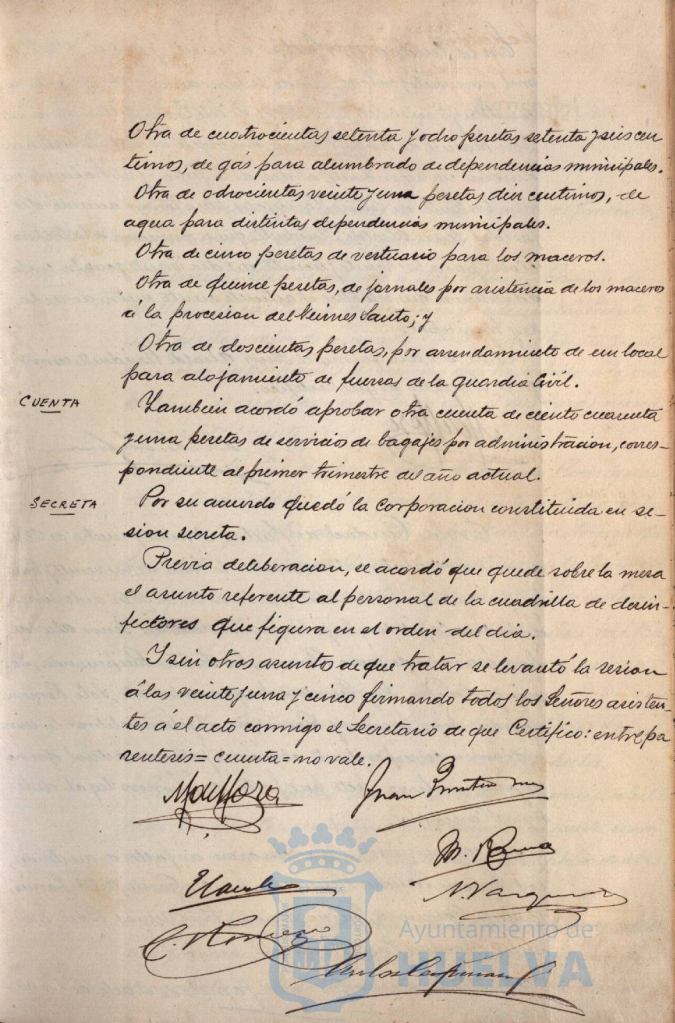 Otra de cuatrocientas setenta y ocho pesetas setenta y seis cen-
timos, de gás para alumbrado de dependencias municipales.
Otra de ochocientas veinte y una pesetas diez centimos, de
agua para distintas dependencias municipales.
Otra de cinco pesetas de vestuario para los maceros.
Otra de quince pesetas, de jornales por asistencia de los maceros
á la procesion del Viernes Santo; y
Otra de doscientas pesetas, por arrendamiento de un local
para alojamiento de fuerzas de la guardia Civil.
CUENTA
Tambien acordó aprobar otra cuenta de ciento cuarenta
y una pesetas de servicios de bagajes por administracion, corres-
pondiente al primer trimestre del año actual.
SECRETA
Por su acuerdo quedó la corporacion constituida en se-
sion secreta.
Previa deliberacion, se acordó que quede sobre la mesa
el asunto referente al personal de la cuadrilla de desin-
fectores que figura en el orden del dia.
Y sin otros asuntos de que tratar se levantó la sesion
á las veinte y una y cinco firmando todos los Señores asisten-
tes á el acto conmigo el Secretario de que Certifico: entre pa
rentesis = cuenta = no vale.
Juan
M.
Ayuntamiento de
HUELVA